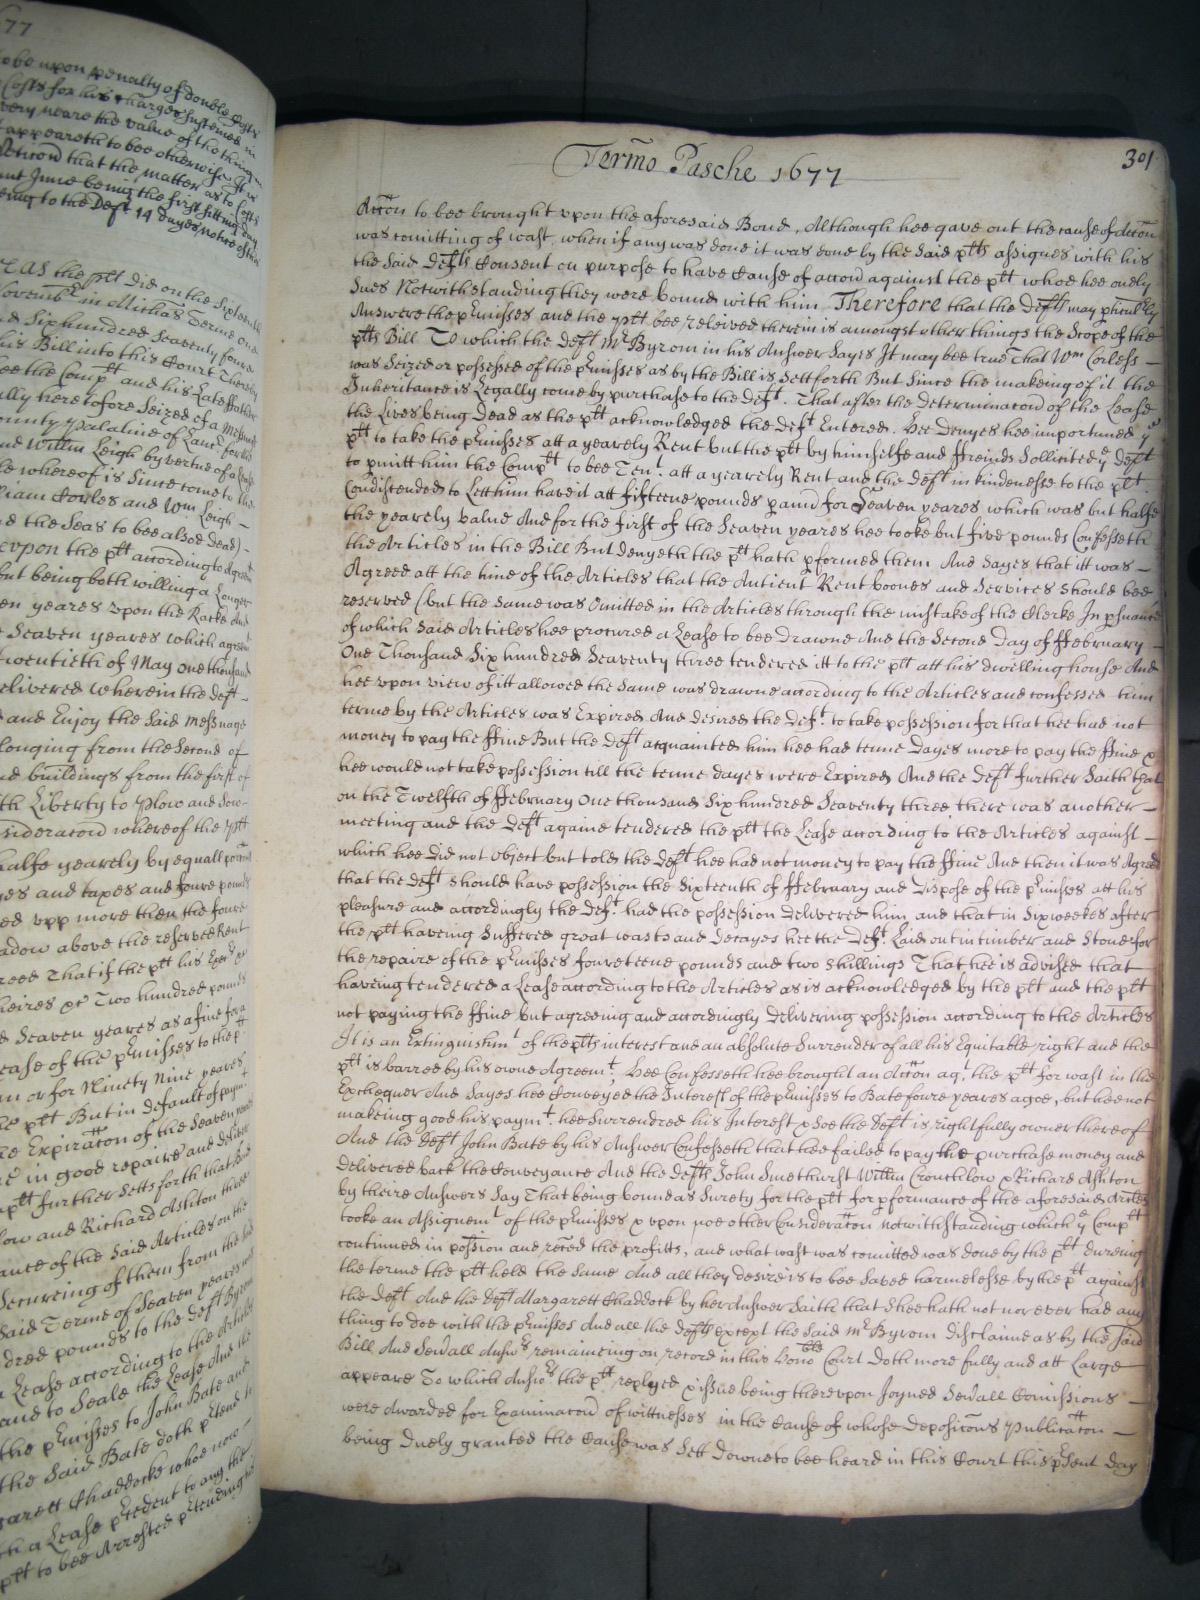 677
to be upon penalty of double Costs
Costs for his Charges sustained in
very neare the value of the thing in
appeareth to bee otherwise It is
that the matter as to Costs
June being the first sitting day
to the Deft 14 dayes notice of this
the plt did on the Sixteenth
Novembr in Michas Terme one
Six hundred Seaventy foure
his Bill into this Court Thereby
the Compt and his Late ffather
heretofore Seized of a Messuage
County Palatine of Lancr for the
and Willm Leigh by vertue of a Lease
whereof is Since come to the
Corles and Wm Leigh -
the Seas to bee alsoe dead) -
upon the plt according to Agreemt
but being both willing a Longer
yeares upon the Racke And
Seaven yeares which agreemt
twentieth of May One thousand
delivered Wherein the deft -
and Enjoy the Said Messuage
longing from the Second of
buildings from the first of
Liberty to plow and Sow-
sideracon whereof the plt
halfe yearely by equall porcons
and taxes and foure pounds
upp more then the foure
above the reserved Rent
That if the plt his Exers or
heires &c Two hundred pounds
Seaven yeares as a fine for a
Lease of the pmisses to the plt
or for Ninety Nine yeares
plt But in default of paymt
Expiracon of the Seaven yeares
in good repaire and deliver
plt further Setts forth that
and Richard Ashton three
of the Said Articles on the
Secureing of them from the Said
Said Terme of Seaven yeares
dred pounds to the deft Byrom
Lease according to the Articles
and to Seale the Lease And the
the pmisses to John Bate and
the Said Bate doth ptend to
Chaddocke whoe now
a Lease pcedent to any the
plt to bee Arrested ptending
Termo Pasche 1677
301
Accon to bee brought upon the aforesaid Bond, Although hee gave out the cause of Accon
was comitting of wast, when if any was done it was done by the Said plts assignes with his
the Said Defts Consent on purpose to have Cause of accon against the plt whoe hee onely
Sues Notwithstanding they were bound with him Therefore that the Defts may pticulerly
Answere the pmisses and the plt bee releived therein is amongst other things the Scope of the
plts Bill To which the Deft Mr Byrom in his Answer Sayes It may bee true That Wm Corless -
was Seized or possessed of the pmisses as by the Bill is Sett forth But Since the makeing of it the
Inheritance is Legally come by purchase to the Deft. That after the determinacon of the Lease
the Lives being Dead as the plt acknowledged the Deft Entered. Hee Denyes hee importuned ye
plt to take the pmisses att a yearely Rent but the plt by himselfe and ffreinds Sollicited ye Deft
to pmitt him the Compt to bee Tent. att a yearely Rent and the Deft in kindenesse to the plt.
Condiscended to Lett him have it att fifteene pounds p annu for Seaven yeares which was but halfe
the yearely value And for the first of the Seaven yeares hee tooke but five pounds Confesseth
the Articles in the Bill But Denyeth the plt hath pformed them And Sayes that itt was -
Agreed att the time of the Articles that the Antient Rent boones and Services should bee
reserved (but the Same was Omitted in the Articles through the mistake of the Clerke In psuance
of which said Articles hee procured a Lease to bee drawne And the Second Day of ffebruary -
One Thousand Six hundred Seaventy three tendered itt to the plt att his dwelling house And
hee upon view of itt allowed the Same was drawne according to the Articles and confessed
terme by the Articles was Expired And desired the Deft. to take possession for that hee had not
money to pay the ffine But the Deft acquainted him hee had tenne Dayes more to pay the ffine &
hee would not take possession till the tenne dayes were Expired And the Deft further Saith that
on the Twelfth of ffebruary One thousand Six hundred Seaventy three there was another -
meeting and the Deft againe tendered the plt the Lease according to the Articles against -
which hee did not object but told the Deft hee had not money to pay the ffine And then it was Agreed
that the Deft should have possession the Sixteenth of ffebruary and Dispose of the pmisses att his
pleasure and accordingly the Deft. had the possession delivered him and that in Six weekes after
the plt haveing Suffered great wasts and Decayes hee the Deft. Laid out in timber and Stone for
the repaire of the pmisses foureteene pounds and two shillings That hee is advised that
haveing tendered a Lease according to the Articles as is acknowledged by the plt and the plt
not paying the ffine but agreeing and accordingly delivering possession according to the Articles
It is an Extinguishmt of the plts interest and an absolute Surrender of all his Equitable right and the
plt is barred by his owne Agreemt, Hee Confesseth hee brought an Accon agt. the plt for wast in the
Exchequer And Sayes hee Conveyed the Interest of the pmisses to Bate foure yeares agoe, but hee not
makeing good his paymt. hee Surrendred his Interest & Soe the Deft is rightfully owner thereof
And the Deft John Bate by his Answer Confesseth that hee failed to pay the purchase money and
delivered back the Conveyance And the Defts John Smethurst Willm Crouchlow & Richard Ashton
by theire Answers Say That being bound as Surety for the plt for pformance of the aforesaid Articles
tooke an Assignemt of the pmisses & upon noe other Consideracon notwithstanding which ye Compt
continued in possion and reced the profitts, and what wast was comitted was done by the plt dureing
the terme the plt held the Same And all they desire is to bee Saved harmelesse by the plt against
the Deft And the Deft Margarett Chaddock by her Answer Saith that Shee hath not nor ever had any
thing to doe with the pmisses And all the Defts except the Said Mr Byrom disclaime as by the Said
Bill And Sevall Answrs remaineing on record in this Honoble Court doth more fully and att Large -
appeare To which Answrs the plt replyed & issue being thereupon Joyned Sevall Comissions -
were Awarded for Examinacon of wittnesses in the Cause of whose deposicons Publicacon -
being Duely granted the Cause was Sett downe to bee heard in this Court this psent day